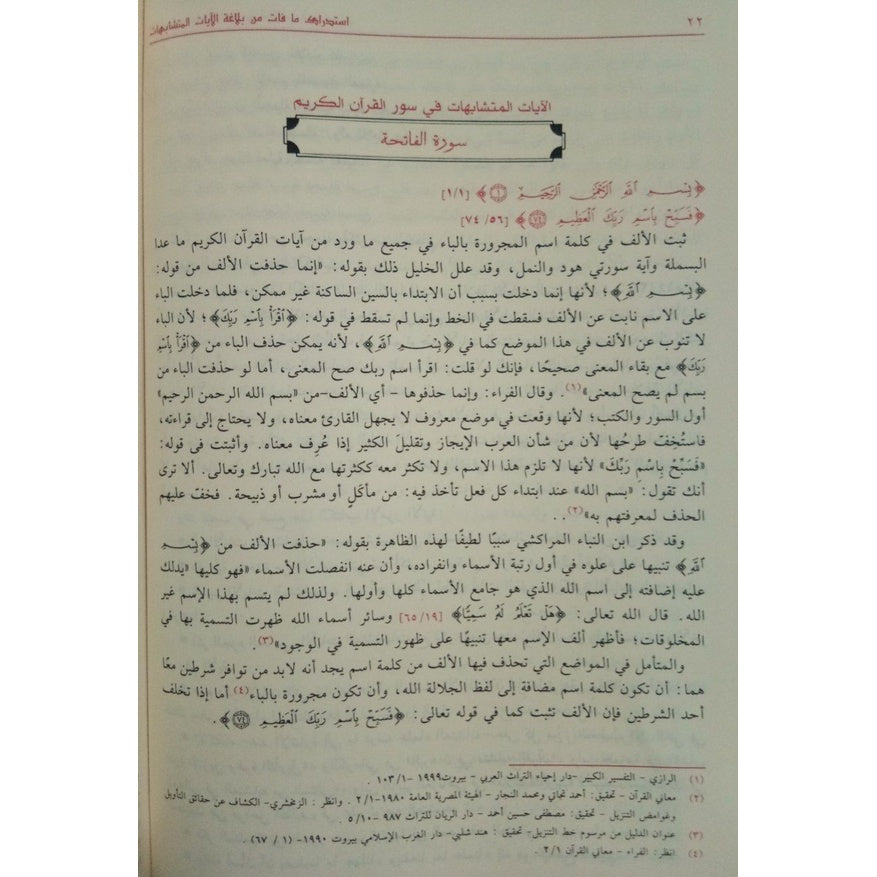 ٢٢
استدراك ما فات من بلاغة الآيات المتشابهات
الآيات المتشابهات في سور القرآن الكريم
سورة الفاتحة
﴿بِسْمِ ٱللَّهِ ٱلرَّحْمَٰنِ ٱلرَّحِيمِ ۝١﴾ [١/١]
﴿فَسَبِّحْ بِٱسْمِ رَبِّكَ ٱلْعَظِيمِ ۝٧٤﴾ [٥٦/ ٧٤]
ثبت الألف في كلمة اسم المجرورة بالباء في جميع ما ورد من آيات القرآن الكريم ما عدا
البسملة وآية سورتي هود والنمل، وقد علل الخليل ذلك بقوله: «إنما حذفت الألف من قوله:
﴿بِسْمِ ٱللَّهِ﴾؛ لأنها إنما دخلت بسبب أن الابتداء بالسين الساكنة غير ممكن، فلما دخلت الباء
على الاسم نابت عن الألف فسقطت في الخط وإنما لم تسقط في قوله: ﴿ٱقْرَأْ بِٱسْمِ رَبِّكَ﴾؛ لأن الباء
لا تنوب عن الألف في هذا الموضع كما في ﴿بِسْمِ ٱللَّهِ﴾، لأنه يمكن حذف الباء من ﴿ٱقْرَأْ بِٱسْمِ
رَبِّكَ﴾ مع بقاء المعنى صحيحًا، فإنك لو قلت: اقرأ اسم ربك صح المعنى، أما لو حذفت الباء من
بسم لم يصح المعنى»(١). وقال الفراء: وإنما حذفوها - أي الألف-من «بسم الله الرحمن الرحيم»
أول السور والكتب؛ لأنها وقعت في موضع معروف لا يجهل القارئ معناه، ولا يحتاج إلى قراءته،
فاستُخِفّ طرحُها لأن من شأن العرب الإيجاز وتقليلَ الكثير إذا عُرِف معناه. وأثبتت فى قوله:
«فَسَبِّحْ بِاسْمِ رَبِّكَ» لأنها لا تلزم هذا الاسم، ولا تكثر معه ككثرتها مع الله تبارك وتعالى. ألا ترى
أنك تقول: «بسم الله» عند ابتداء كل فعل تأخذ فيه: من مأكَلٍ أو مشرب أو ذبيحة. فخفّ عليهم
الحذف لمعرفتهم به»(٢)..
وقد ذكر ابن النباء المراكشي سببًا لطيفًا لهذه الظاهرة بقوله: «حذفت الألف من ﴿بِسْمِ
ٱللَّهِ﴾ تنبيها على علوه في أول رتبة الأسماء وانفراده، وأن عنه انفصلت الأسماء «فهو كليها «يدلك
عليه إضافته إلى اسم الله الذي هو جامع الأسماء كلها وأولها. ولذلك لم يتسم بهذا الإسم غير
الله. قال الله تعالى: ﴿هَلْ تَعْلَمُ لَهُ سَمِيًّا﴾ [٦٥/١٩] وسائر أسماء الله ظهرت التسمية بها في
المخلوقات؛ فأظهر ألف الإسم معها تنبيهًا على ظهور التسمية في الوجود»(٣).
والمتأمل في المواضع التي تحذف فيها الألف من كلمة اسم يجد أنه لابد من توافر شرطين معًا
هما: أن تكون كلمة اسم مضافة إلى لفظ الجلالة الله، وأن تكون مجرورة بالباء(٤) أما إذا تخلف
أحد الشرطين فإن الألف تثبت كما في قوله تعالى: ﴿فَسَبِّحْ بِٱسْمِ رَبِّكَ ٱلْعَظِيمِ ۝٧٤﴾.
(١) الرازي - التفسير الكبير -دار إحياء التراث العربي - بيروت١٩٩٩ -١٠٣/١ .
(٢) معاني القرآن - تحقيق: أحمد نجاتي ومحمد النجار - الهيئة المصرية العامة ١٩٨٠-٢/١ . وانظر : الزمخشري- الكشاف عن حقائق التأويل
وغوامض التنزيل - تحقيق: مصطفى حسين أحمد - دار الريان للتراث ٩٨٧ -٥/١٠
(٣) عنوان الدليل من مرسوم خط التنزيل- تحقيق : هند شلبي- دار الغرب الإسلامي بيروت ١٩٩٠- (١ / ٦٧)
(٤) انظر: الفراء - معاني القرآن ٢/١ .